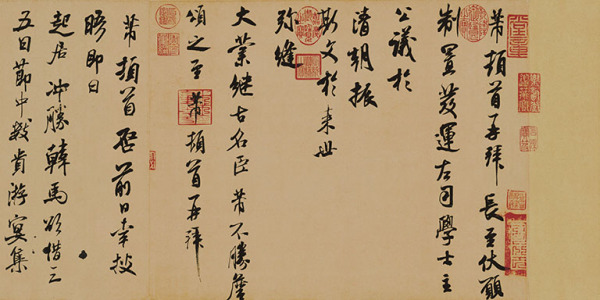 芾頓首再拜 長至伏願
制置發運左司學士主
公議於
清朝振
斯文於来世
弥縫
大業継古名臣 芾不勝
頌之至 芾頓首再拜
芾頓首啓 前日幸披
晤即日
起居冲勝韓馬欲借三
五日節中數貴游宴集